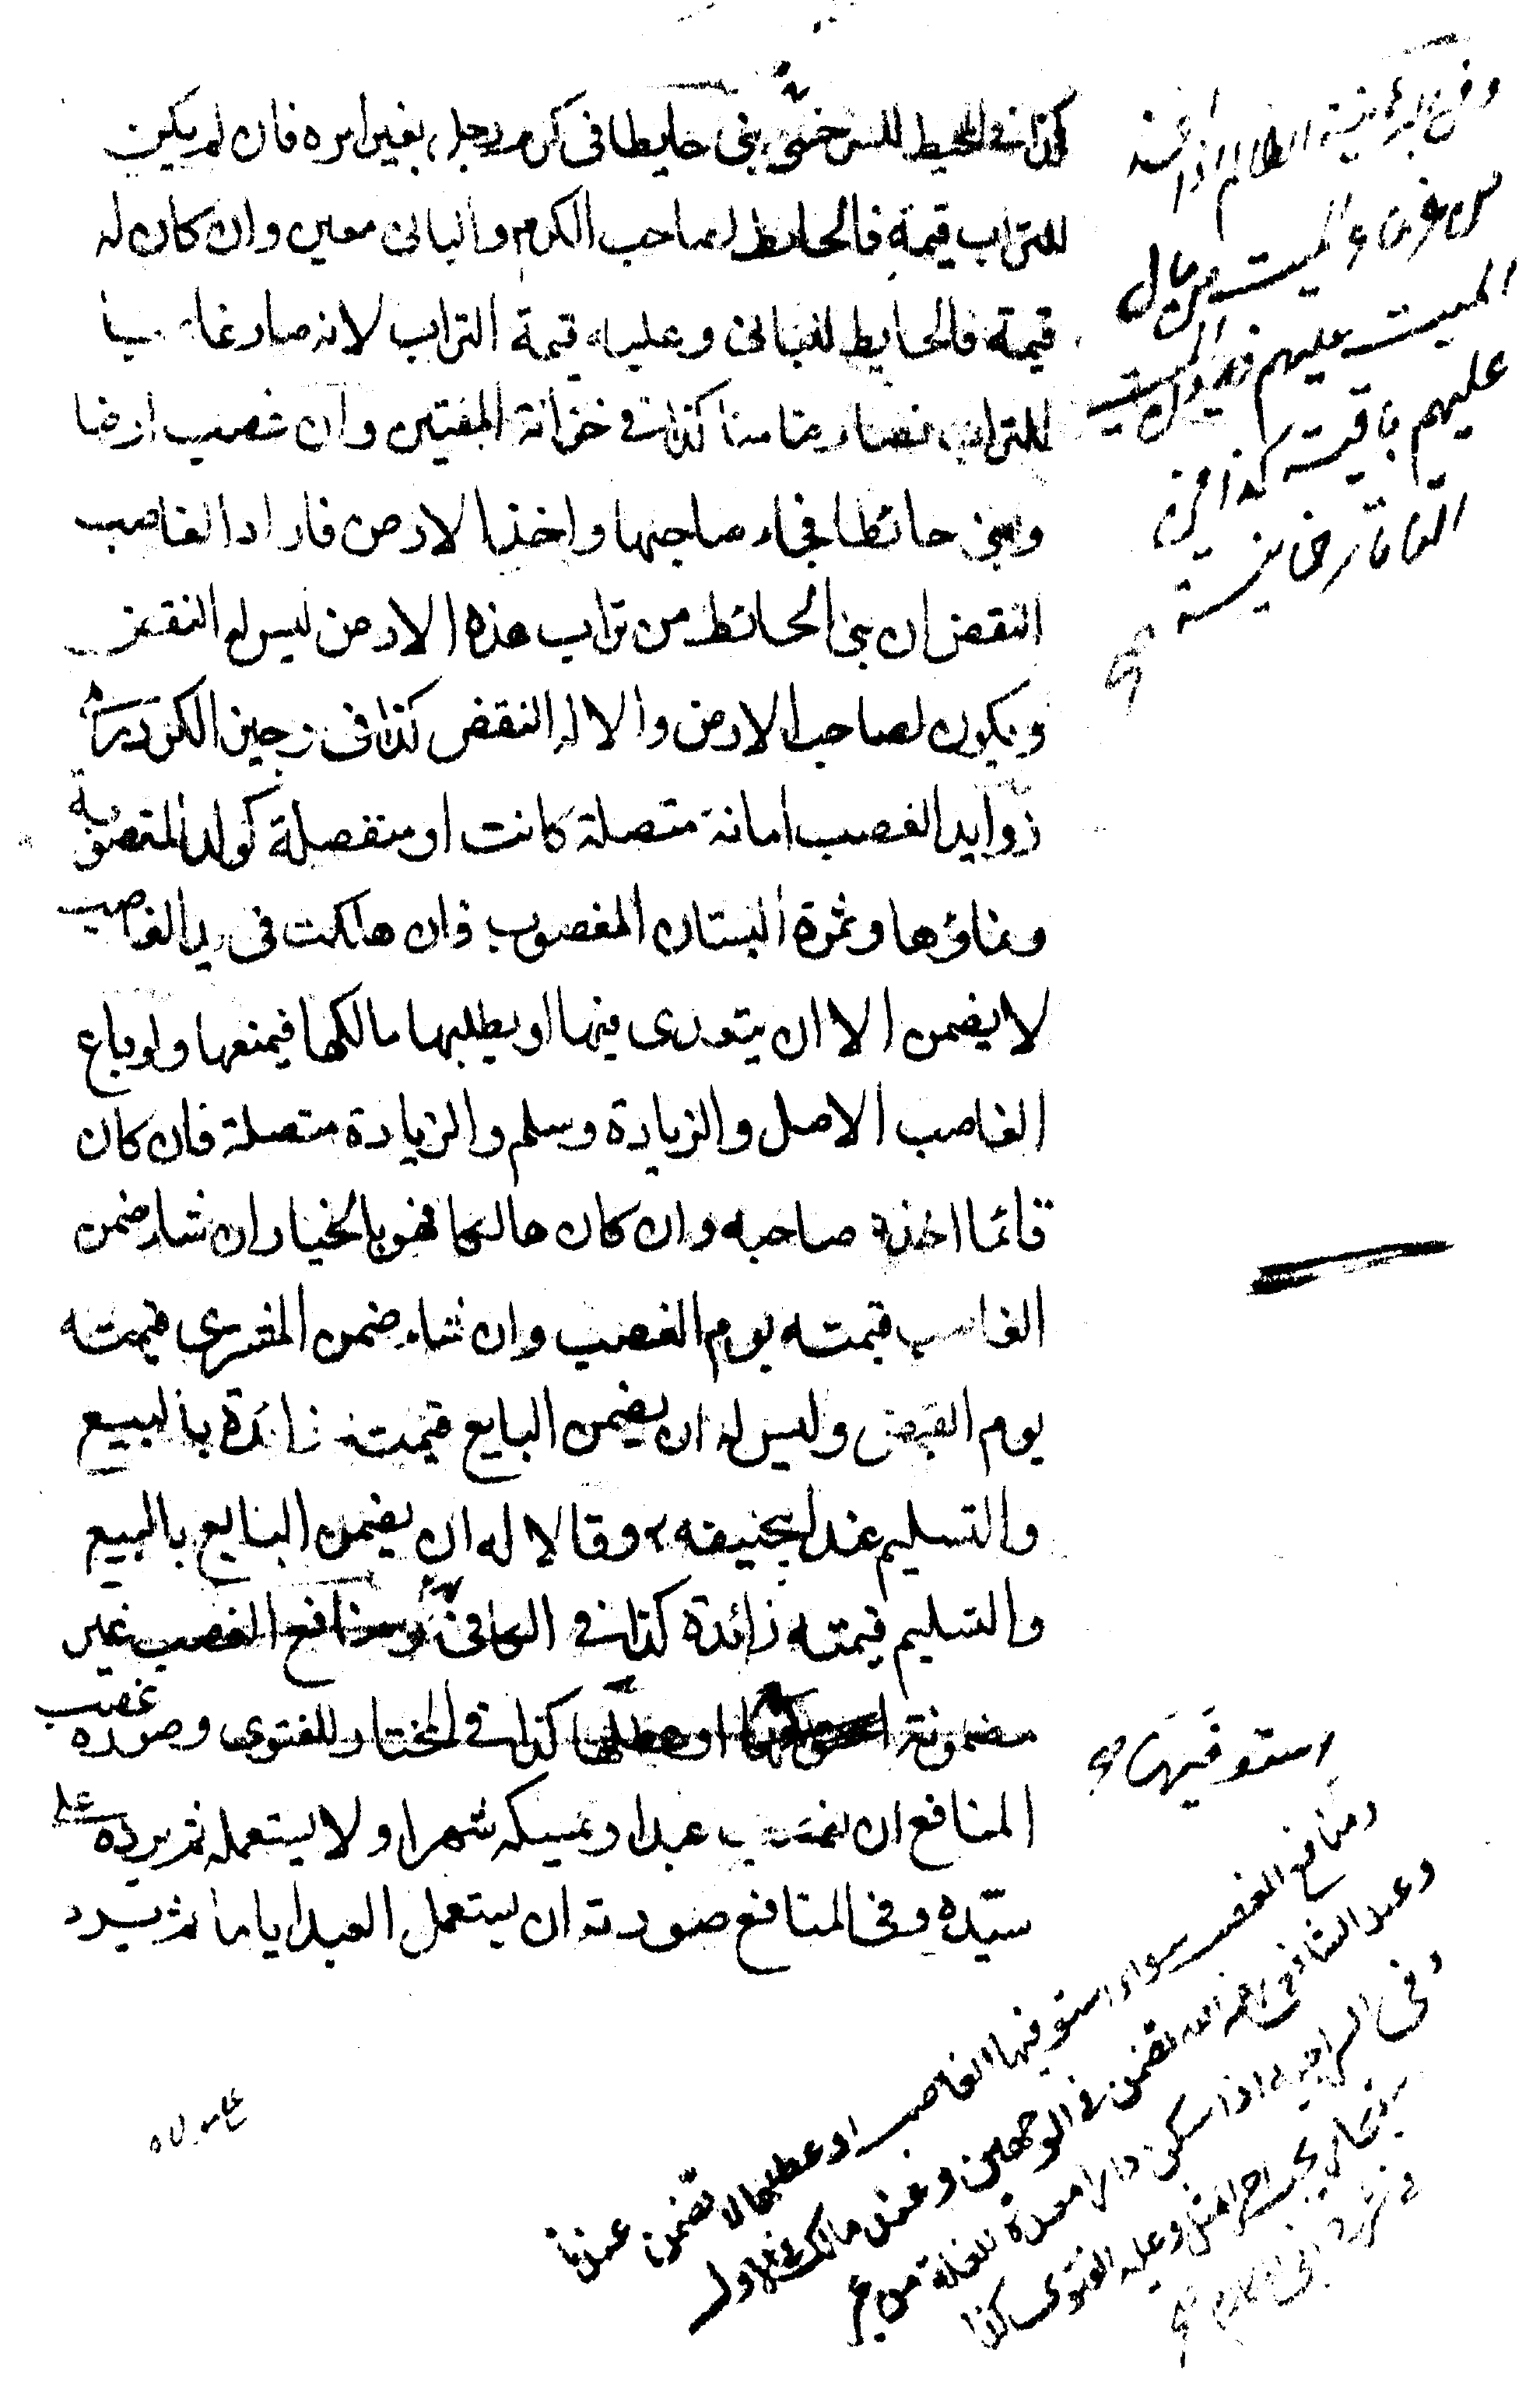 كذا في المحيط للسرخسي بنى حايطا فى كرم رجل بغير امره فان لم يكن
للتراب قيمة فالحايط لصاحب الكرم والبانى معين وان كان له
قيمة فالحايط للبانى وعليه قيمة التراب لانه صار غاصبا
للتراب فصار ضامنا كذا فى خزانة المفتين وان غصب ارضا
وبنى حائطا فجاء صاحبها واخذ الارض فاراد الغاصب
النقض ان بنى الحائط من تراب هذه الارض ليس له النقض
ويكون لصاحب الارض والا له النقض كذا فى وجيز الكردرى
زوايد الغصب امانة متصلة كانت او منفصلة كولد المغصوبة
ونماؤها وثمرة البستان المغصوب فان هلكت فى يد الغاصب
لا يضمن الا ان يتعدى فيها او يطلبها مالكها فيمنعها ولو باع
الغاصب الاصل والزيادة وسلم والزيادة متصلة فان كان
قائما اخذه صاحبه وان كان هالكا فهو بالخيار ان شاء ضمن
الغاصب قيمته يوم الغصب وان شاء ضمن المشترى قيمته
يوم القبض وليس له ان يضمن البايع قيمته زائدة بالبيع
والتسليم عند ابيحنيفه وقالا له ان يضمن البايع بالبيع
والتسليم قيمته زائدة كذا فى الكافى ومنافع الغصب غير
مضمونة او عطلها كذا فى المختار للفتوى وصورة غصب
المنافع ان يغصب عبدا ويمسكه شهرا ولا يستعمله ثم يرده على
سيّده وفى المنافع صورته ان يستعمل العبد اياما ثم يرد
الظالم اذا اخذ
من غرماء الميت من مال
الميت عليهم فديون الميت
عليهم باقية كذا فى
التاتارخانية
استوفيها
ومنافع الغصب سواء استوفيها الغاصب او عطلها لا تضمن عندنا
وعند الشافعى رحمه الله تضمن فى الوجهين وعند مالك فى الاول
وفى السراجيه اذا سكن دارا معدة للغلة من غير
يجب اجر المثل وعليه الفتوى كذا